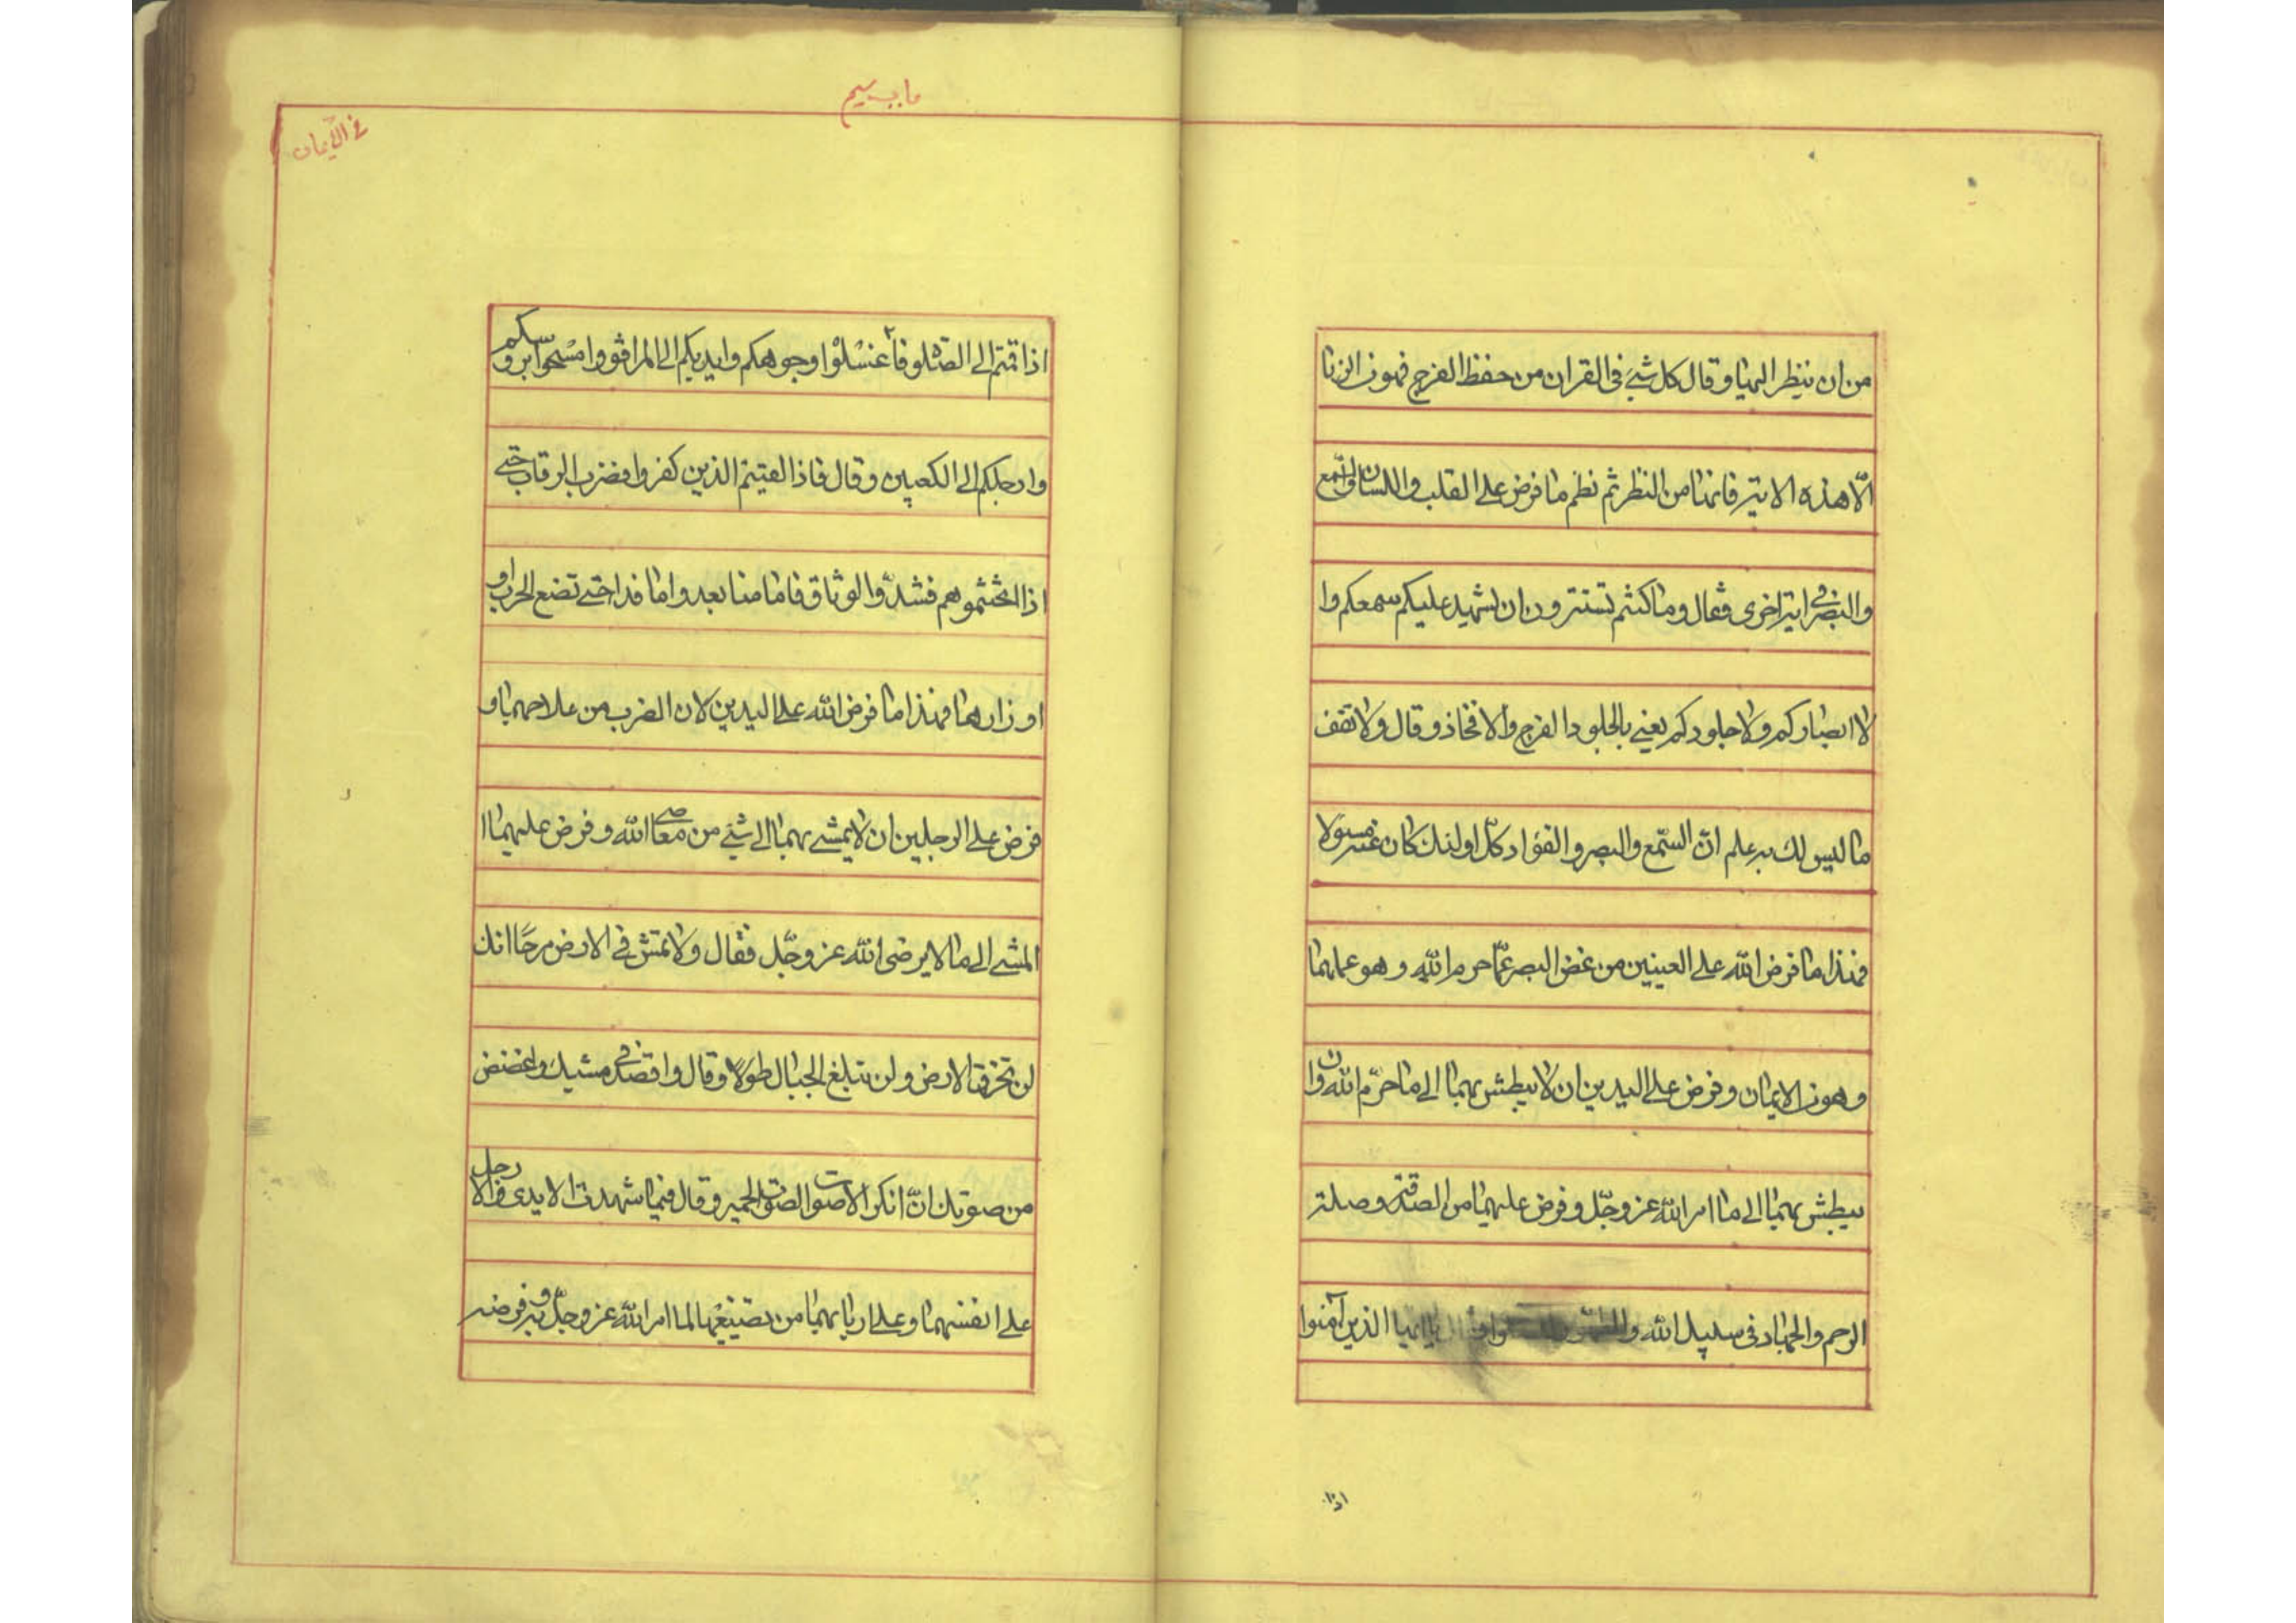 من ان ينظر اليها وقال كل شئ فى القران من حفظ الفرج فهو من الزنا
الّا هذه الاية فانها من النظر ثم نظم ما فرض على القلب واللسان والسّمع
والبصر فى اية اخرى فقال وما كنتم تستترون ان يشهد عليكم سمعكم وا
لا ابصاركم ولا جلودكم يعنى بالجلود الفرج والافخاذ وقال ولا تقف
ما ليس لك به علم انّ السّمع والبصر والفؤاد كلّ اولئك كان عنه مسؤلا
فهذا ما فرض الله على العينين من غض البصر عمّا حرم الله وهو عملهما
وهو من الايمان وفرض على اليدين ان لا يبطش بهما الى ما حرّم الله وان
يبطش بهما الى ما امر الله عز وجّل وفرض عليهما من الصدقة وصلة
الرحم والجهاد فى سبيل الله يا ايها الذين آمنوا
اذا
باب سيم
فى الايمان
اذا قمتم الى الصّلوة فاغسلوا وجوهكم وايديكم الى المرافق وامسحوا برؤسكم
وارجلكم الى الكعبين وقال فاذا لقيتم الذين كفروا فضرب الرقاب حتى
اذا اثخنتموهم فشدّوا الوثاق فاما منا بعد واما فداء حتى تضع الحرب او
اوزارها فهذا ما فرض الله على اليدين لان الضرب من علاجهما و
فرض على الرجلين ان لا يمشى بهما الى شئ من معاصى الله وفرض عليهما ا
المشى الى ما لا يرضى الله عز وجّل فقال ولا تمش فى الارض مرحًا انك
لن تخرق الارض ولن تبلغ الجبال طولًا وقال واقصد فى مشيك واغضض
من صوتك انّ انكر الاصوات الصوت الحمير وقال فيما شهدت الايدى والارجل
على انفسهما وعلى اربابهما من تضييعهما لما امر الله عز وجلّ به وفرضه